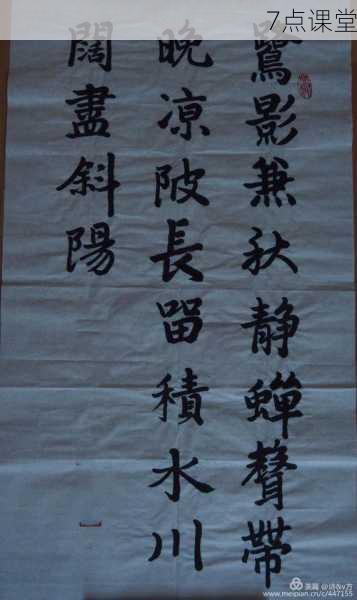 7点课堂
鷺影兼秋静蟬聲帶
晚凉陂長留積水川
闊盡斜陽
美篇
www.meipian.cn/c/447155